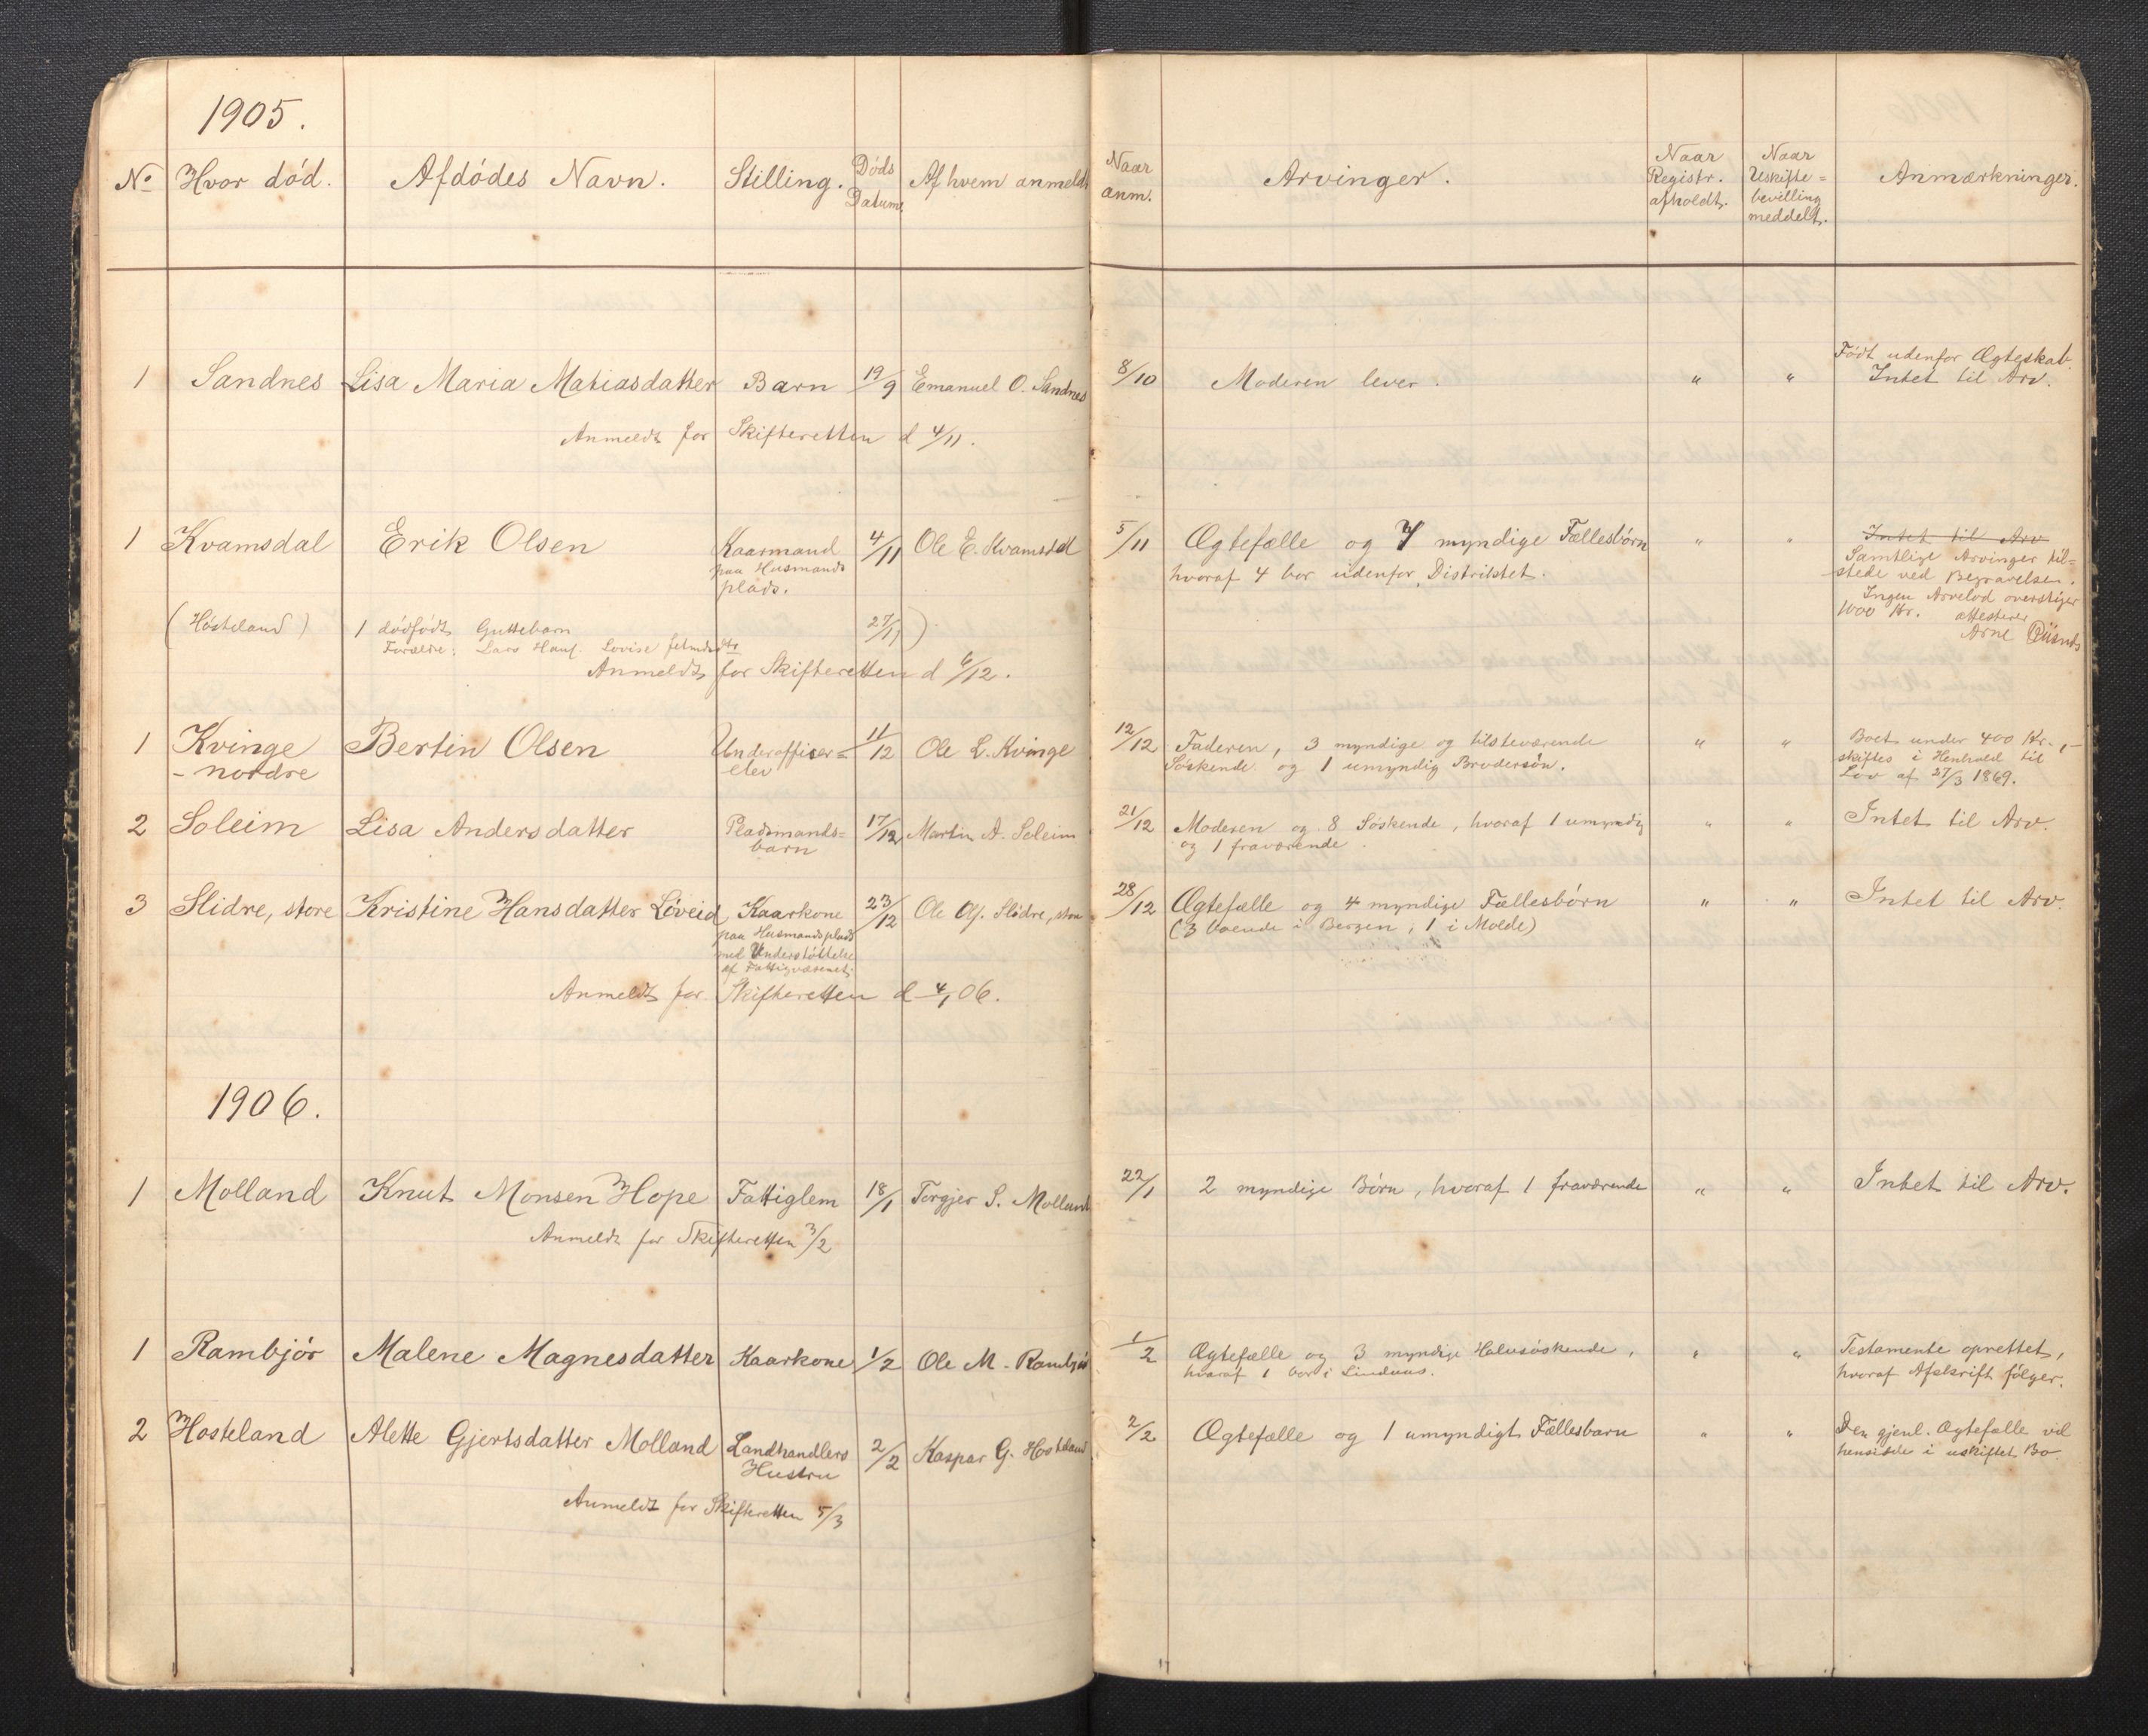 1905.
No Hvor död. Afdödes Navn. Stilling. Döds Datum. Af hvem anmeldt Naar anm. Arvinger. Naar Registr. afholdt. Naar Uskifte=bevilling meddelt. Anmærkninger.
1 Sandnes Lisa Maria Matiasdatter Barn 19/9 Emanuel O. Sandnes 8/10 Moderen lever. " " Födt udenfor Ægteskab.
Intet til Arv.
Anmeldt for Skifteretten d 4/11.
1 Kvamsdal Erik Olsen Kaarmand 4/11 Ole E. Kvamsdal 5/11 Ægtefælle og 7 myndige Fællesbörn " " Intet til Arv
paa Husmands
plads.
hvoraf 4 bor udenfor Distriktet.
Samtlige Arvinger til=
stede ved Begravelsen.
Ingen Arvelod overstiger
1000 Kr. attesterer
Arne
(Hosteland) 1 dödfödt Guttebarn 27/11)
Forældre: Lars Hansf. Lovise
Anmeldt for Skifteretten d 6/12.
1 Kvinge Bertin Olsen Underofficer= 11/12 Ole L. Kvinge 12/12 Faderen, 3 myndige og tilsteværende " " Boet under 400 Kr.,
- nordre elev Söskende og 1 umyndig Brodersön. skiftes i Henhold til
Lov af 27/3 1869.
2 Soleim Lisa Andersdatter Pladsmands= 17/12 Martin A. Soleim 21/12 Moderen og 8 Söskende, hvoraf 1 umyndig " " Intet til Arv.
barn og 1 fraværende.
3 Slidre, store Kristine Hansdatter Löveid Kaarkone 23/12 Ole Slidre, store 28/12 Ægtefælle og 4 myndige Fællesbörn " " Intet til Arv.
paa Husmandsplads
med Understöttelse
af Fattigvæsenet.
(3 boende i Bergen, 1 i Molde)
Anmeldt for Skifteretten d 4/1 06.
1906.
1 Molland Knut Monsen Hope Fattiglem 18/1 Torgjer S. Molland 22/1 2 myndige Börn, hvoraf 1 fraværende " " Intet til Arv.
Anmeldt for Skifteretten 3/2
1 Rambjör Malene Magnesdatter Kaarkone 1/2 Ole M. Rambjör 1/2 Ægtefælle og 3 myndige Halvsöskende, " " Testamente oprettet,
hvoraf 1 bor i Lindaas. hvoraf Afskrift fölger.
2 Hosteland Alette Gjertsdatter Molland Landhandlers 2/2 Kaspar G. Hosteland 2/2 Ægtefælle og 1 umyndigt Fællesbarn " " Den gjenl. Ægtefælle vil
Hustru hensidde i uskiftet Bo.
Anmeldt for Skifteretten 5/3